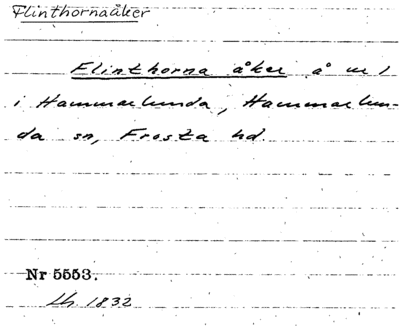 Flinthornaåker
Flinthorna åker å nr 1
i Hammarlunda, Hammarlun-
da sn, Frosta hd.
Nr 5553.
Lh. 1832